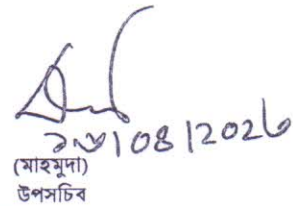 ১৩|০৪|২০২৬
(মাহমুদা)
উপসচিব